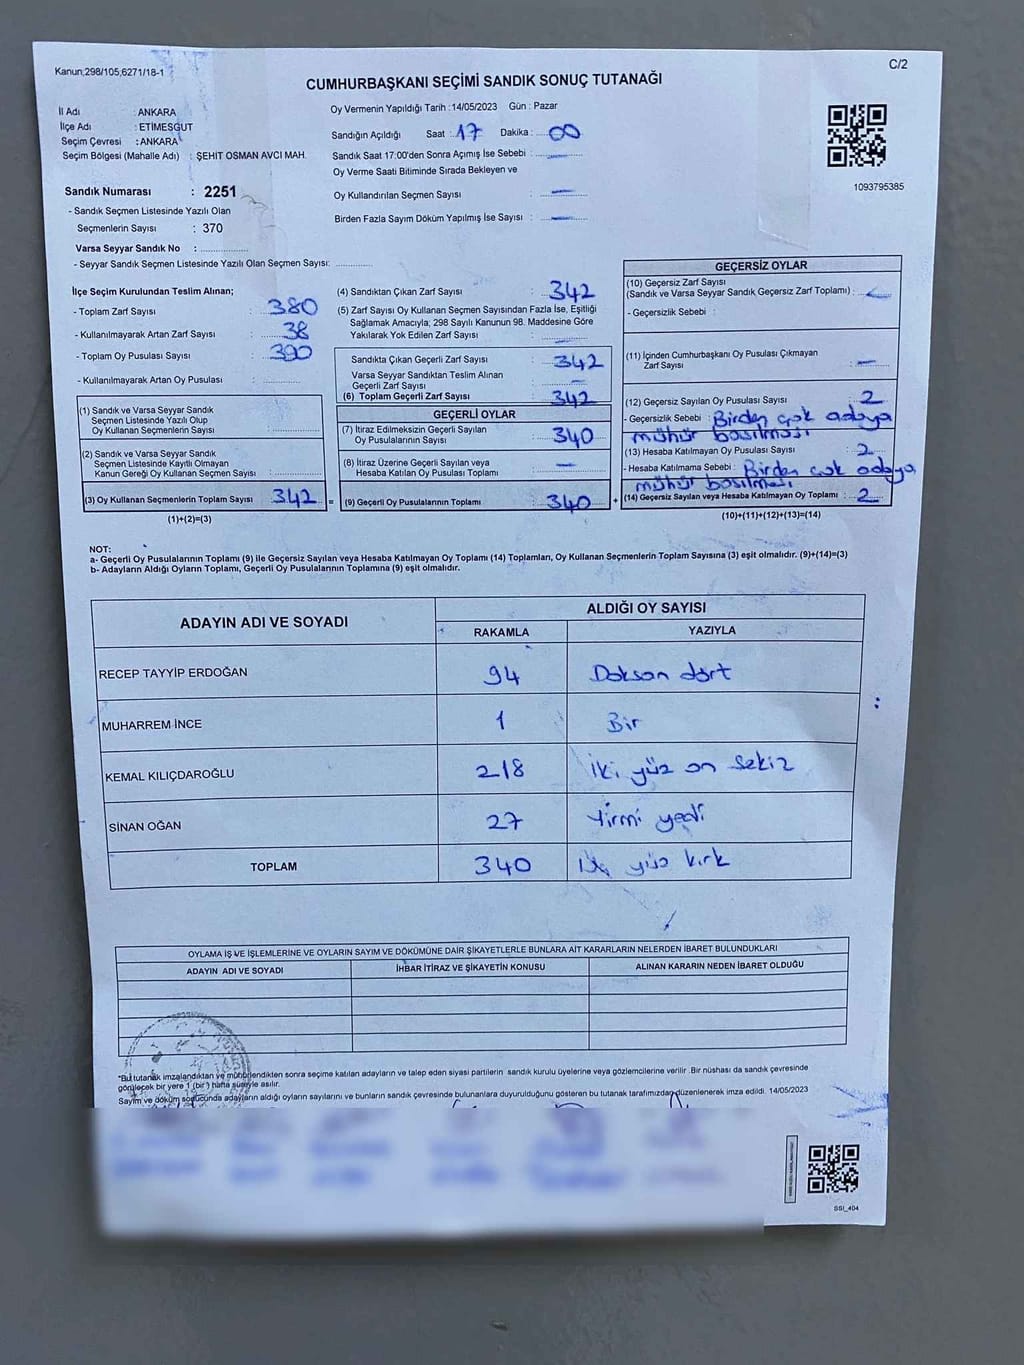 Kanun,298/105,6271/18-1
C/2
CUMHURBAŞKANI SEÇİMİ SANDIK SONUÇ TUTANAĞI
İl Adı : ANKARA
İlçe Adı : ETİMESGUT
Seçim Çevresi : ANKARA
Seçim Bölgesi (Mahalle Adı) : ŞEHİT OSMAN AVCI MAH.
Sandık Numarası : 2251
- Sandık Seçmen Listesinde Yazılı Olan
Seçmenlerin Sayısı : 370
Varsa Seyyar Sandık No :
- Seyyar Sandık Seçmen Listesinde Yazılı Olan Seçmen Sayısı:
Oy Vermenin Yapıldığı Tarih :14/05/2023 Gün : Pazar
Sandığın Açıldığı Saat : 17 Dakika : 00
Sandık Saat 17:00'den Sonra Açımış İse Sebebi : —
Oy Verme Saati Bitiminde Sırada Bekleyen ve
Oy Kullandırılan Seçmen Sayısı : —
Birden Fazla Sayım Döküm Yapılmış İse Sayısı : —
1093795385
İlçe Seçim Kurulundan Teslim Alınan;
- Toplam Zarf Sayısı : 380
- Kullanılmayarak Artan Zarf Sayısı : 38
- Toplam Oy Pusulası Sayısı : 390
- Kullanılmayarak Artan Oy Pusulası :
(1) Sandık ve Varsa Seyyar Sandık
Seçmen Listesinde Yazılı Olup
Oy Kullanan Seçmenlerin Sayısı :
(2) Sandık ve Varsa Seyyar Sandık
Seçmen Listesinde Kayıtlı Olmayan
Kanun Gereği Oy Kullanan Seçmen Sayısı :
(3) Oy Kullanan Seçmenlerin Toplam Sayısı 342 =
(1)+(2)=(3)
(4) Sandıktan Çıkan Zarf Sayısı : 342
(5) Zarf Sayısı Oy Kullanan Seçmen Sayısından Fazla İse, Eşitliği
Sağlamak Amacıyla; 298 Sayılı Kanunun 98. Maddesine Göre
Yakılarak Yok Edilen Zarf Sayısı : —
Sandıkta Çıkan Geçerli Zarf Sayısı : 342
Varsa Seyyar Sandıktan Teslim Alınan
Geçerli Zarf Sayısı : —
(6) Toplam Geçerli Zarf Sayısı : 342
GEÇERLİ OYLAR
(7) İtiraz Edilmeksizin Geçerli Sayılan
Oy Pusulalarının Sayısı : 340
(8) İtiraz Üzerine Geçerli Sayılan veya
Hesaba Katılan Oy Pusulası Toplamı : —
(9) Geçerli Oy Pusulalarının Toplamı : 340 +
GEÇERSİZ OYLAR
(10) Geçersiz Zarf Sayısı
(Sandık ve Varsa Seyyar Sandık Geçersiz Zarf Toplamı) : —
- Geçersizlik Sebebi :
(11) İçinden Cumhurbaşkanı Oy Pusulası Çıkmayan
Zarf Sayısı : —
(12) Geçersiz Sayılan Oy Pusulası Sayısı : 2
- Geçersizlik Sebebi : Birden çok adaya
mühür basılması
(13) Hesaba Katılmayan Oy Pusulası Sayısı : 2
- Hesaba Katılmama Sebebi : Birden çok adaya
mühür basılması
(14) Geçersiz Sayılan veya Hesaba Katılmayan Oy Toplamı : 2
(10)+(11)+(12)+(13)=(14)
NOT:
a- Geçerli Oy Pusulalarının Toplamı (9) ile Geçersiz Sayılan veya Hesaba Katılmayan Oy Toplamı (14) Toplamları, Oy Kullanan Seçmenlerin Toplam Sayısına (3) eşit olmalıdır. (9)+(14)=(3)
b- Adayların Aldığı Oyların Toplamı, Geçerli Oy Pusulalarının Toplamına (9) eşit olmalıdır.
ADAYIN ADI VE SOYADI
ALDIĞI OY SAYISI
RAKAMLA YAZIYLA
RECEP TAYYİP ERDOĞAN 94 Doksan dört
MUHARREM İNCE 1 Bir
KEMAL KILIÇDAROĞLU 218 İki yüz on sekiz
SİNAN OĞAN 27 Yirmi yedi
TOPLAM 340 yüz kırk
OYLAMA İŞ VE İŞLEMLERİNE VE OYLARIN SAYIM VE DÖKÜMÜNE DAİR ŞİKAYETLERLE BUNLARA AİT KARARLARIN NELERDEN İBARET BULUNDUKLARI
ADAYIN ADI VE SOYADI İHBAR İTİRAZ VE ŞİKAYETİN KONUSU ALINAN KARARIN NEDEN İBARET OLDUĞU
*Bu tutanak imzalandıktan ve mühürlendikten sonra seçime katılan adayların ve talep eden siyasi partilerin sandık kurulu üyelerine veya gözlemcilerine verilir .Bir nüshası da sandık çevresinde
görülecek bir yere 1 (bir) hafta süreyle asılır.
Sayım ve döküm sonucunda adayların aldığı oyların sayılarını ve bunların sandık çevresinde bulunanlara duyurulduğunu gösteren bu tutanak tarafımızdan düzenlenerek imza edildi. 14/05/2023
SSI_404